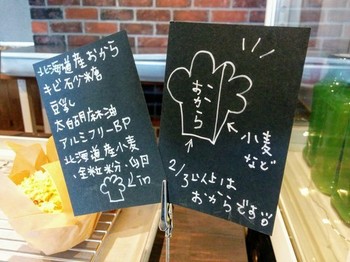 北海道産おから
キビ砂糖
豆乳
太白胡麻油
アルミフリーBP
北海道産小麦
・全粒粉
in
おから
小麦
など
2/3以上は
おからです